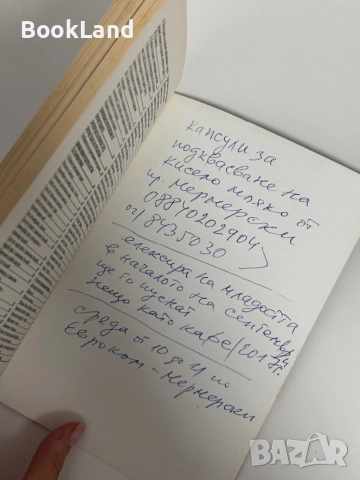 BookLand
капсули за
подквасване на
кисело мляко от
Мермерски
088/0202904
02/8435030
елексира на младостта
в началото на септември
ще го пускат
нещо като кафе/2017г.
среда от 10 до 11 по
Евроком - Мермерски
BAZAR